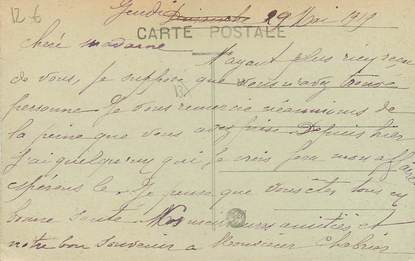 12.6
Jeudi Dimanche 29 Mai 1919
CARTE POSTALE
chère madame
N'ayant plus rien reçu
de vous, je suppose que vous n'avez trouvé
personne je vous remercie néanmoins de
la peine que vous avez prise Depuis hier
j'ai quelqu'un qui je crois fera mon affaire
espérons le. Je pense que vous êtes tous en
bonne santé Nos meilleures amitiés, et
notre bon souvenir à Monsieur